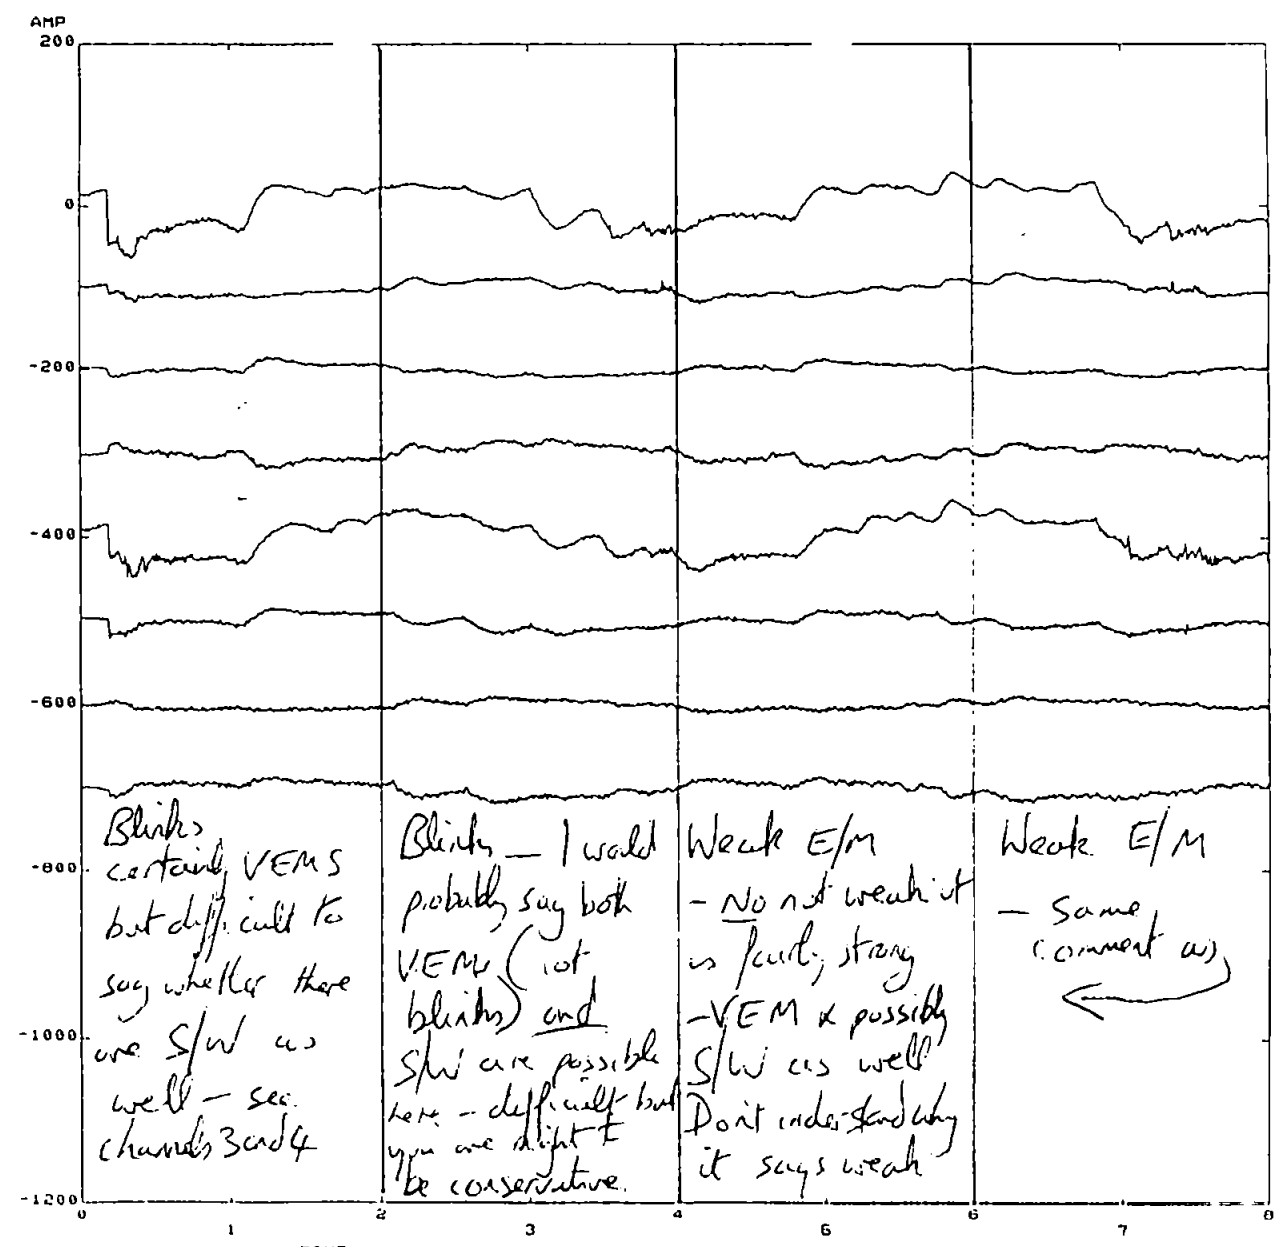 AMP
200
0
-200
-400
-600
-800
-1000
-1200
0 1 2 3 4 5 6 7 8
Blinks
certainly VEMS
but difficult to
say whether there
are S/W as
well - see
channels 3 and 4
Blinks — I would
probably say both
VEMs (not
blinks) and
S/W are possible
here - difficult but
you are right to
be conservative.
Weak E/M
- No not weak it
is fairly strong
- VEM & possibly
S/W as well
Don't understand why
it says weak
Weak E/M
- Same
comment as